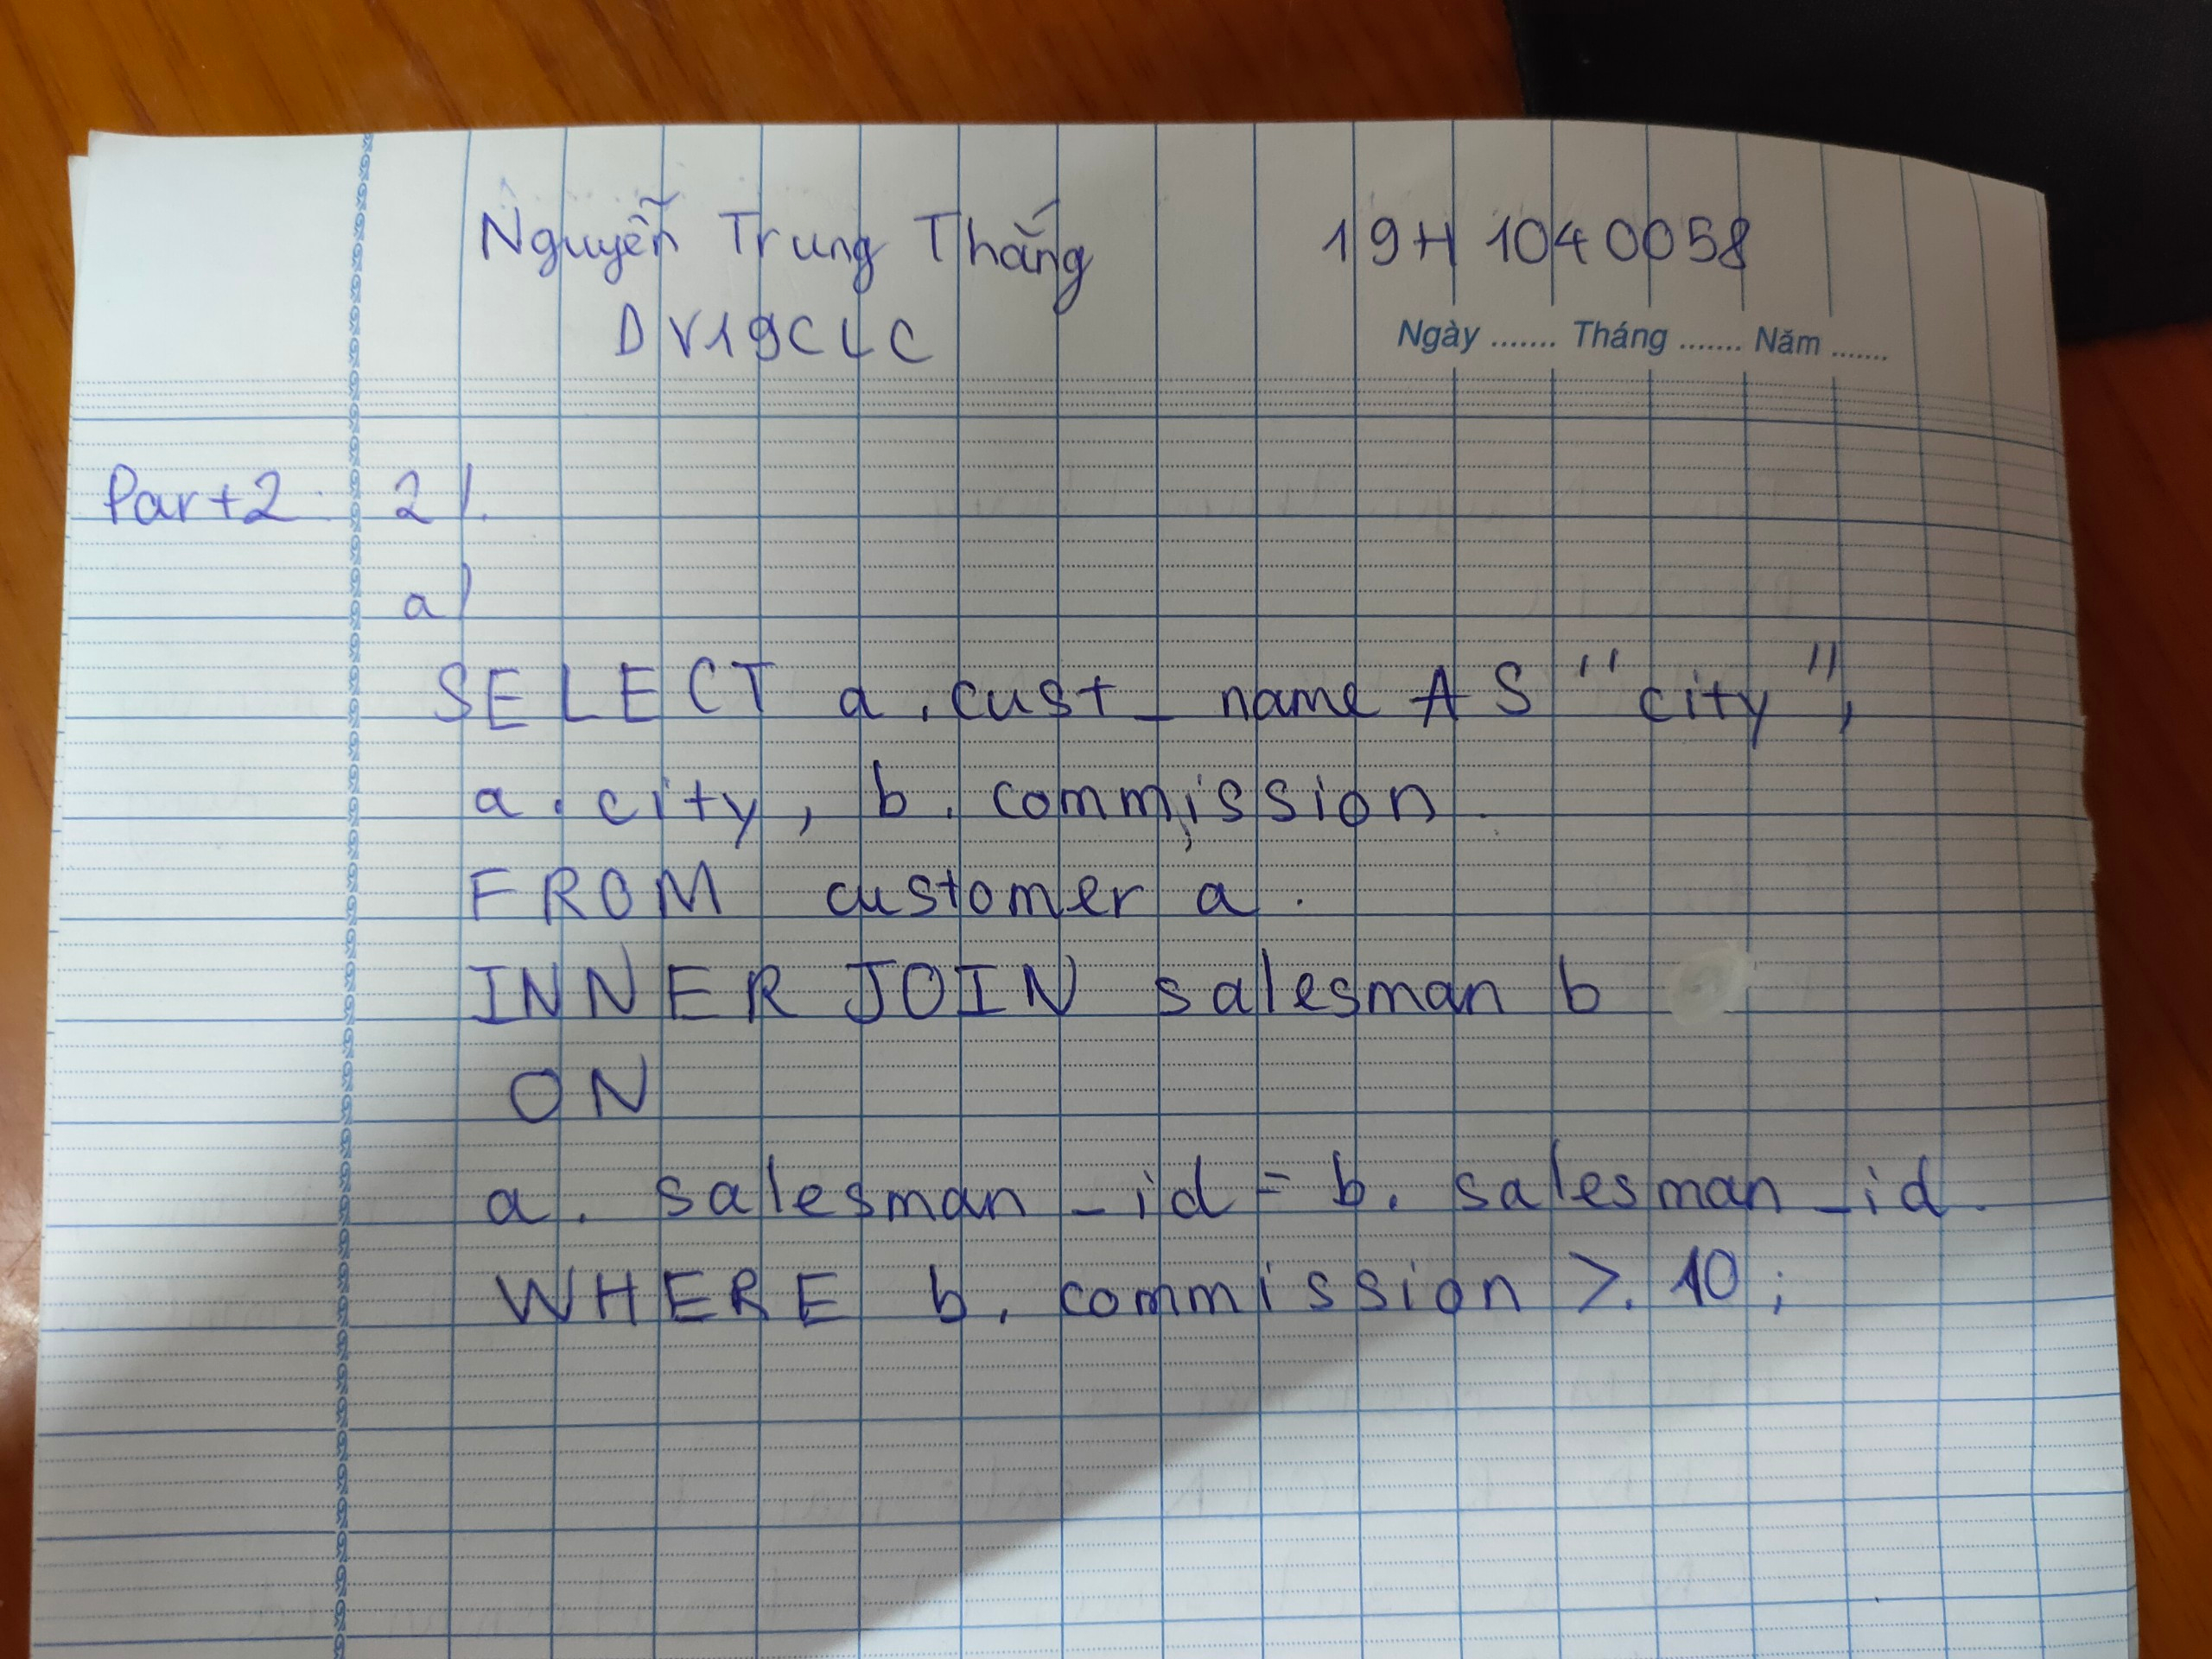 Nguyễn Trung Thắng 19H1040058
DV19CLC
Ngày ....... Tháng ....... Năm .......
Part 2: 2/.
a/
SELECT a.cust_name AS "city",
a.city, b.commission.
FROM customer a.
INNER JOIN salesman b
ON
a.salesman_id = b.salesman_id.
WHERE b.commission >. 10;